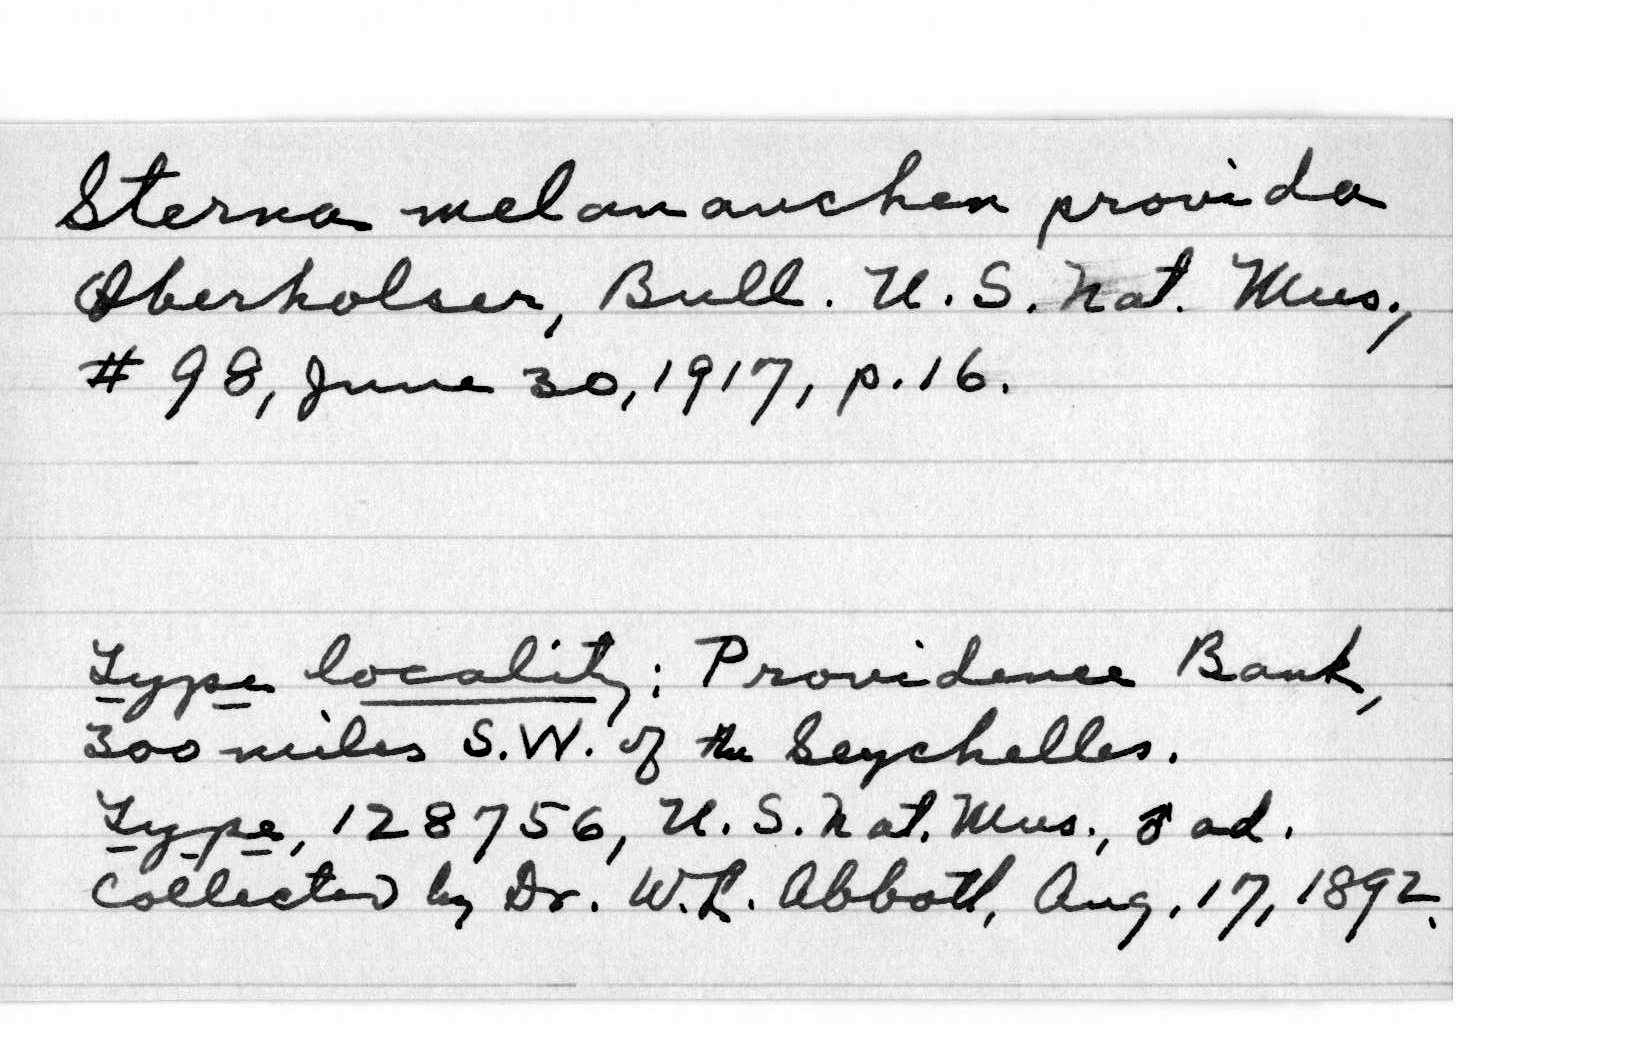 Sterna melanauchen provida
Oberholser, Bull. U.S. Nat. Mus.,
# 98, June 30, 1917, p. 16.
Type locality; Providence Bank,
300 miles S.W. of the Seychelles.
Type, 128756, U.S. Nat. Mus., ♂ ad.
Collected by Dr. W.L. Abbott, Aug. 17, 1892.